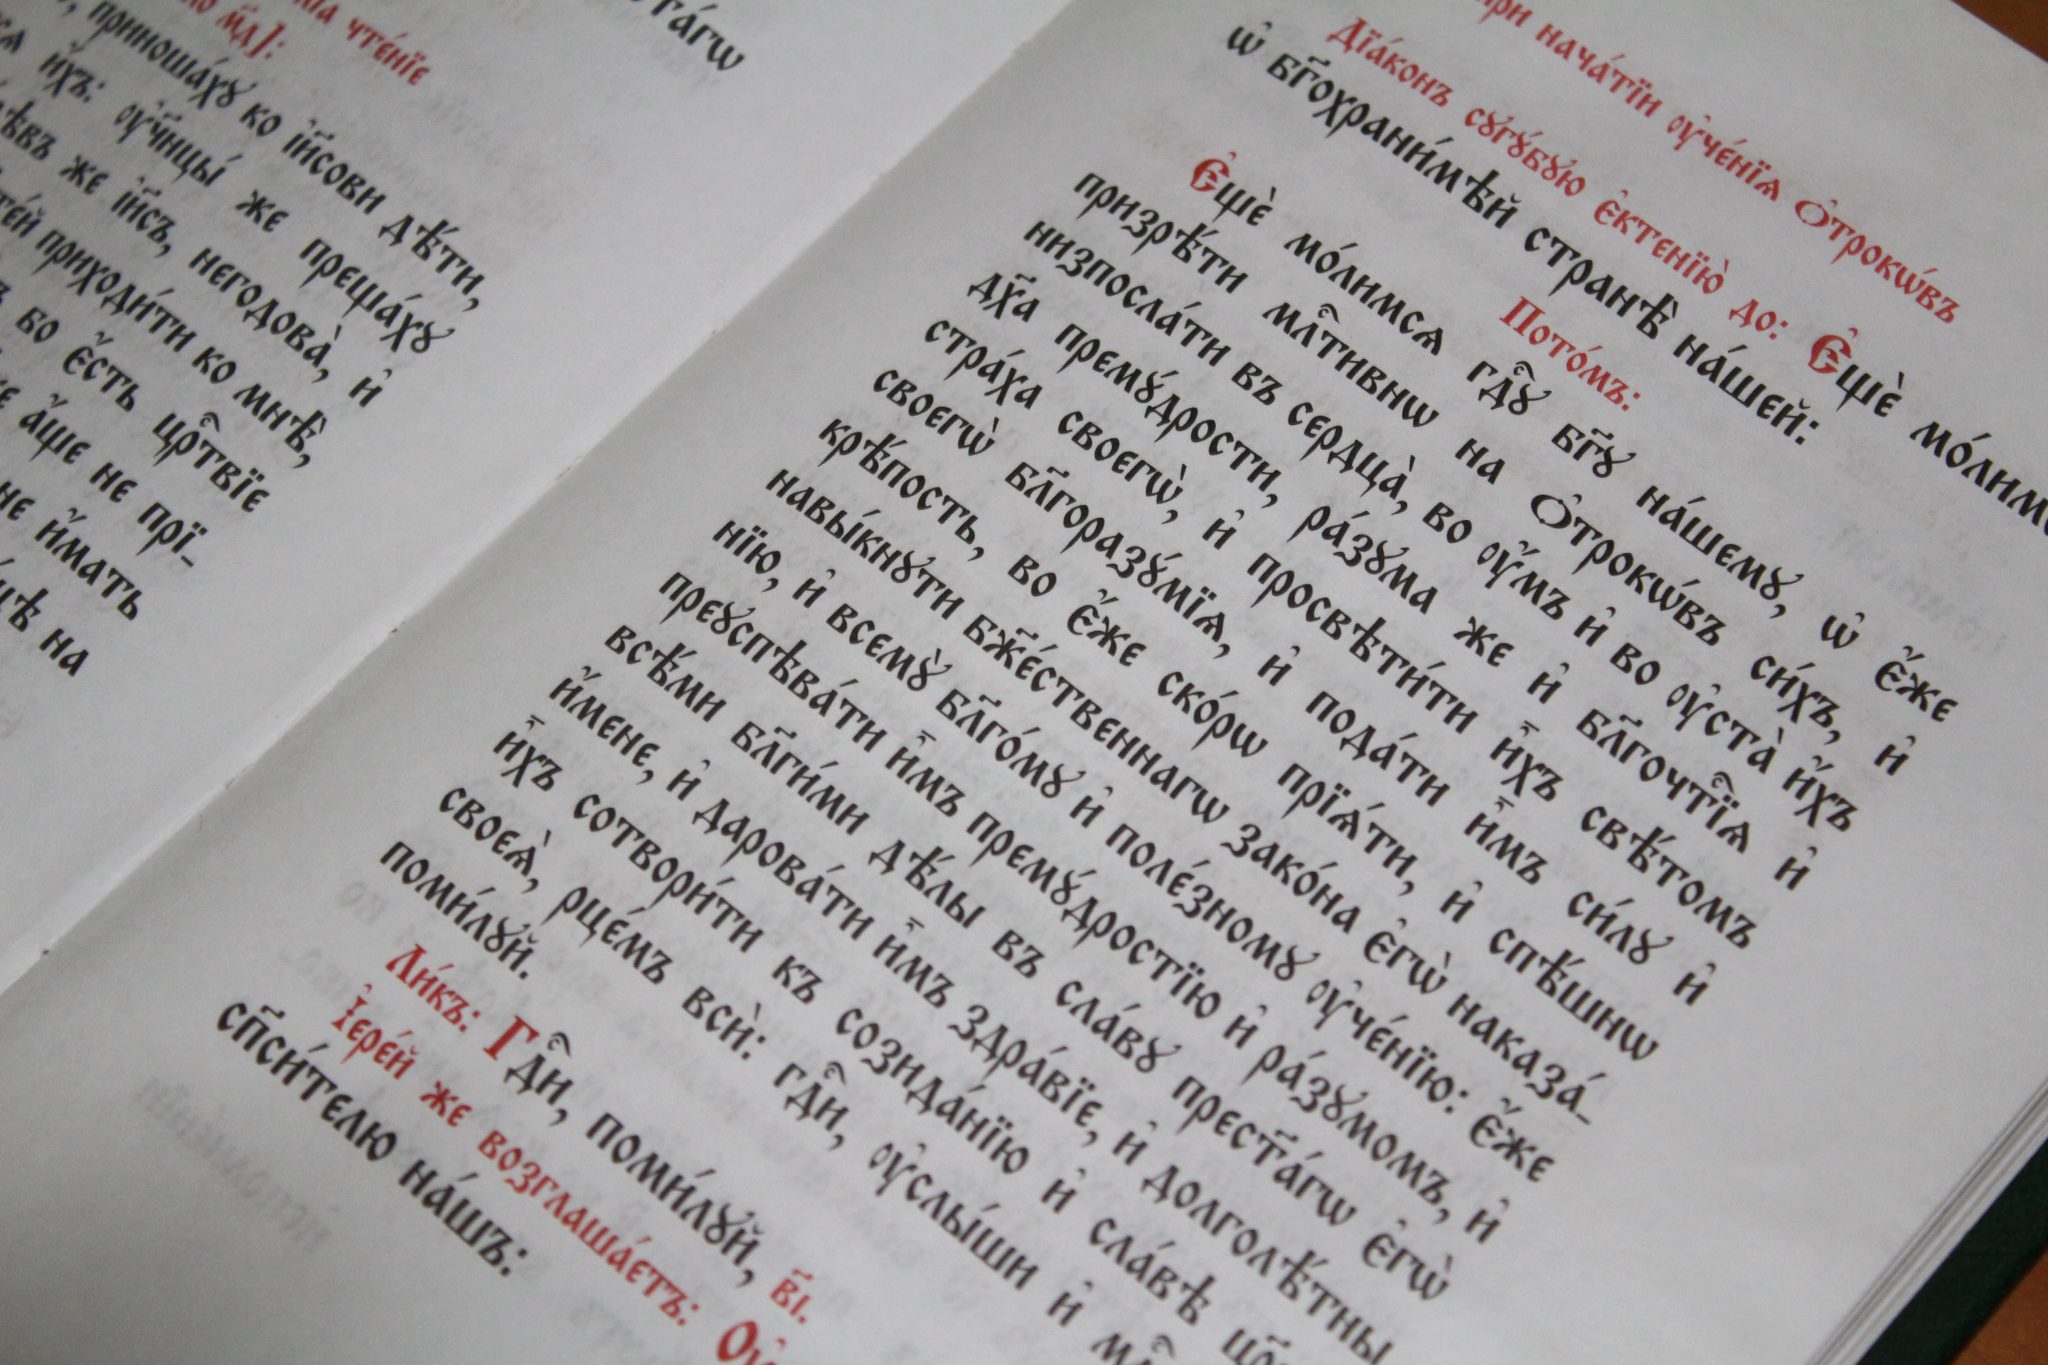 ста́гѡ
чте́нїе
м҃д]:
приноша́хꙋ ко і҆и҃сови дѣ́ти,
и҆̀хъ: ᲂу҆ч҃нцы́ же преща́хꙋ
же і҆и҃съ, негодова̀, и҆
приходи́ти ко мнѣ̀,
бо є҆́сть црⷭ҇твїе
а҆́ще не прї-
не и҆́мать
на
при нача́тїи ᲂу҆че́нїѧ Ѻ҆трокѡ́въ
Дїа́конъ сꙋгꙋ́бꙋю є҆ктенїю̀ до: Є҆щѐ мо́лимсѧ
ѡ҆ бг҃охрани́мѣй странѣ̀ на́шей:
Пото́мъ:
Є҆щѐ мо́лимсѧ гдⷭ҇ꙋ бг҃ꙋ на́шемꙋ, ѡ҆ є҆́же
призрѣ́ти млⷭ҇тивнѡ на Ѻ҆трокѡ́въ си́хъ, и҆
низпосла́ти въ сердца̀, во ᲂу҆́мъ и҆ во ᲂу҆ста̀ и҆́хъ
дх҃а премꙋ́дрости, ра́зꙋма же и҆ бл҃гочтⷭ҇їѧ и҆
стра́ха своегѡ̀, и҆ просвѣти́ти и҆̀хъ свѣ́томъ
своегѡ̀ бл҃горазꙋ́мїѧ, и҆ пода́ти и҆̀мъ си́лꙋ и҆
крѣ́пость, во є҆́же ско́рѡ прїѧ́ти, и҆ спѣ́шнѡ
навы́кнꙋти бж҃е́ственнагѡ зако́на є҆гѡ̀ наказа́-
нїю, и҆ всемꙋ̀ бл҃го́мꙋ и҆ поле́зномꙋ ᲂу҆че́нїю: є҆́же
преꙋспѣва́ти и҆̀мъ премꙋ́дростїю и҆ ра́зꙋмомъ, и҆
всѣ́ми бл҃ги́ми дѣ́лы въ сла́вꙋ прест҃а́гѡ є҆гѡ̀
и҆́мене, и҆ дарова́ти и҆̀мъ здра́вїе, и҆ долголѣ́тны
и҆̀хъ сотвори́ти къ созида́нїю и҆ сла́вѣ
своеѧ̀, рце́мъ всѝ: гдⷭ҇и, ᲂу҆слы́ши и҆
поми́лꙋй.
Ли́къ: Гдⷭ҇и, поми́лꙋй, в҃і.
І҆ере́й же возглаша́етъ:
сп҃си́телю на́шъ: